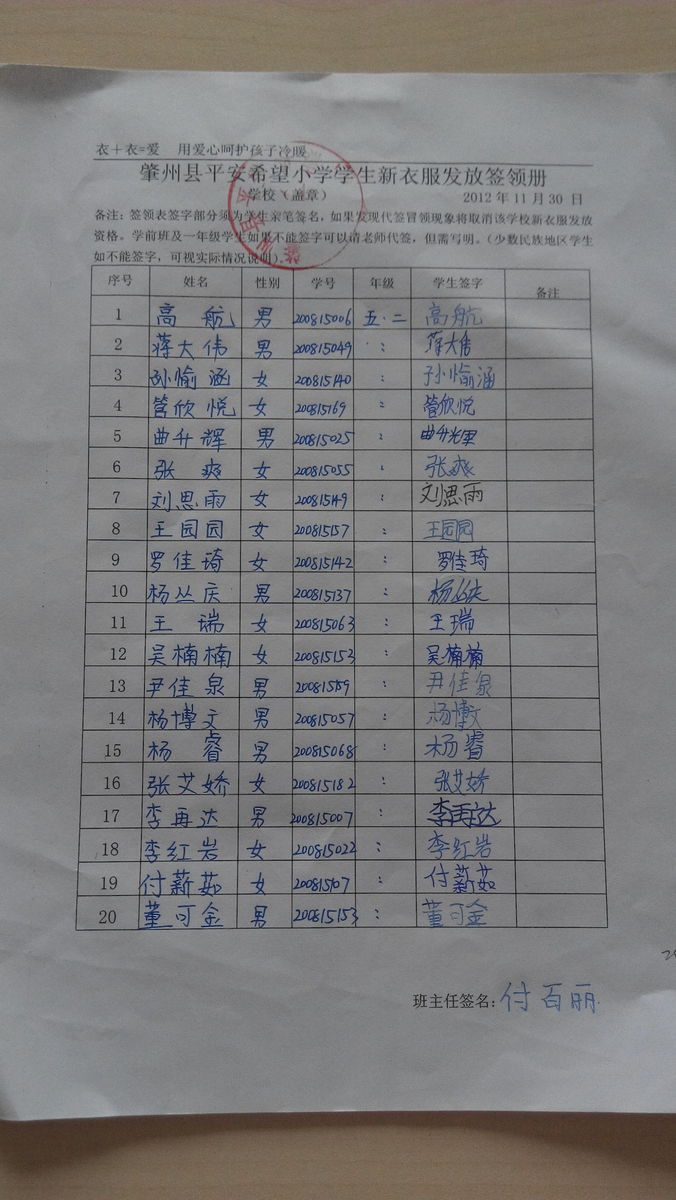 衣＋衣=爱 用爱心呵护孩子冷暖
肇州县平安希望小学学生新衣服发放签领册
学校（盖章） 2012 年 11 月 30 日
备注：签领表签字部分须为学生亲笔签名，如果发现代签冒领现象将取消该学校新衣服发放
资格。学前班及一年级学生如果不能签字可以请老师代签，但需写明。（少数民族地区学生
如不能签字，可视实际情况说明）。
序号 姓名 性别 学号 年级 学生签字 备注
1 高航 男 200815006 五.二 高航
2 蒋大伟 男 200815049 : 蒋大伟
3 孙愉涵 女 200815140 : 孙愉涵
4 管欣悦 女 200815169 : 管欣悦
5 曲升辉 男 200815025 : 曲升辉
6 张爽 女 200815055 : 张爽
7 刘思雨 女 200815149 : 刘思雨
8 王园园 女 200815157 : 王园园
9 罗佳琦 女 200815142 : 罗佳琦
10 杨丛庆 男 200815137 : 杨丛庆
11 王瑞 女 200815063 : 王瑞
12 吴楠楠 女 200815153 : 吴楠楠
13 尹佳泉 男 200815159 : 尹佳泉
14 杨博文 男 200815057 : 杨博文
15 杨睿 男 200815068 : 杨睿
16 张艾娇 女 200815182 : 张艾娇
17 李再达 男 200815007 : 李再达
18 李红岩 女 200815022 : 李红岩
19 付薪茹 女 200815107 : 付薪茹
20 董可金 男 200815153 : 董可金
班主任签名：付百丽